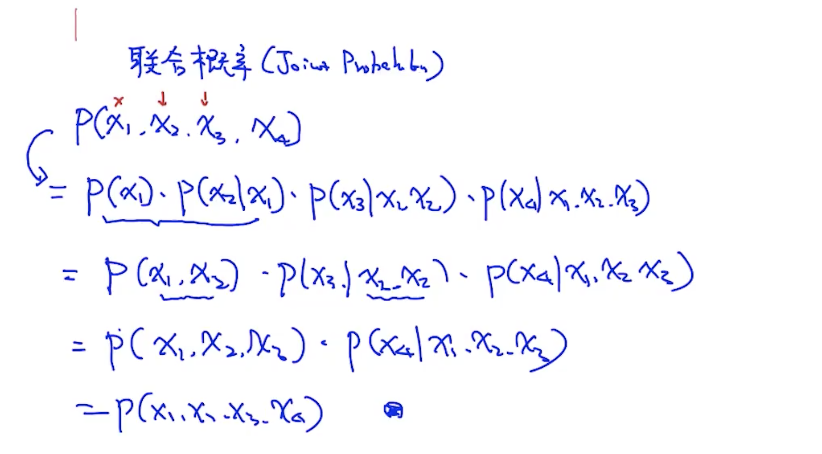 联合概率(Joint Probability)
P(x₁, x₂, x₃, x₄)
= P(x₁) · P(x₂|x₁) · P(x₃|x₂ x₂) · P(x₄|x₁, x₂, x₃)
= P(x₁, x₂) · P(x₃|x₂, x₂) · P(x₄|x₁, x₂ x₃)
= P(x₁, x₂, x₃) · P(x₄|x₁, x₂, x₃)
= P(x₁, x₂, x₃, x₄)